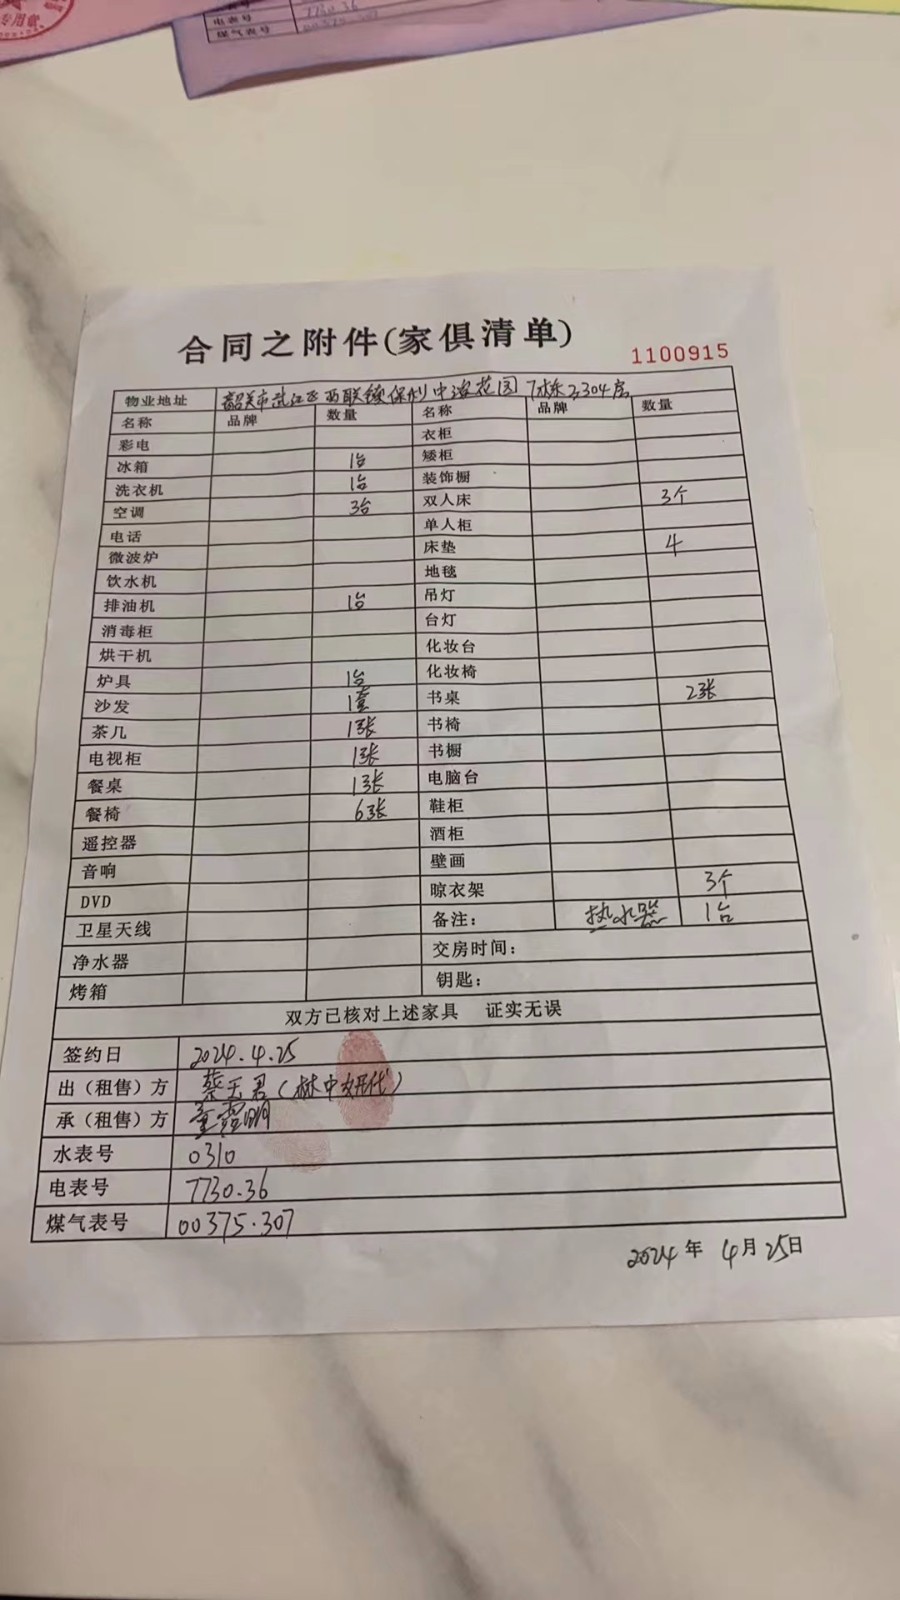 专用章
电表号 7730.36
煤气表号 00375.307
合同之附件(家俱清单)
1100915
物业地址 韶关市武江区西联镇保利中宏花园 7栋2304房
名称 品牌 数量 名称 品牌 数量
彩电 衣柜
冰箱 1台 矮柜
洗衣机 1台 装饰橱
空调 3台 双人床 3个
电话 单人柜
微波炉 床垫 4
饮水机 地毯
排油机 1台 吊灯
消毒柜 台灯
烘干机 化妆台
炉具 1台 化妆椅
沙发 1套 书桌 2张
茶几 1张 书椅
电视柜 1张 书橱
餐桌 1张 电脑台
餐椅 6张 鞋柜
遥控器 酒柜
音响 壁画
DVD 晾衣架 3个
卫星天线 备注： 热水器 1台
净水器 交房时间：
烤箱 钥匙：
双方已核对上述家具 证实无误
签约日 2024.4.25
出（租售）方 蔡玉君（林中妍代）
承（租售）方 童霞明
水表号 0310
电表号 7730.36
煤气表号 00375.307
2024年 4月25日